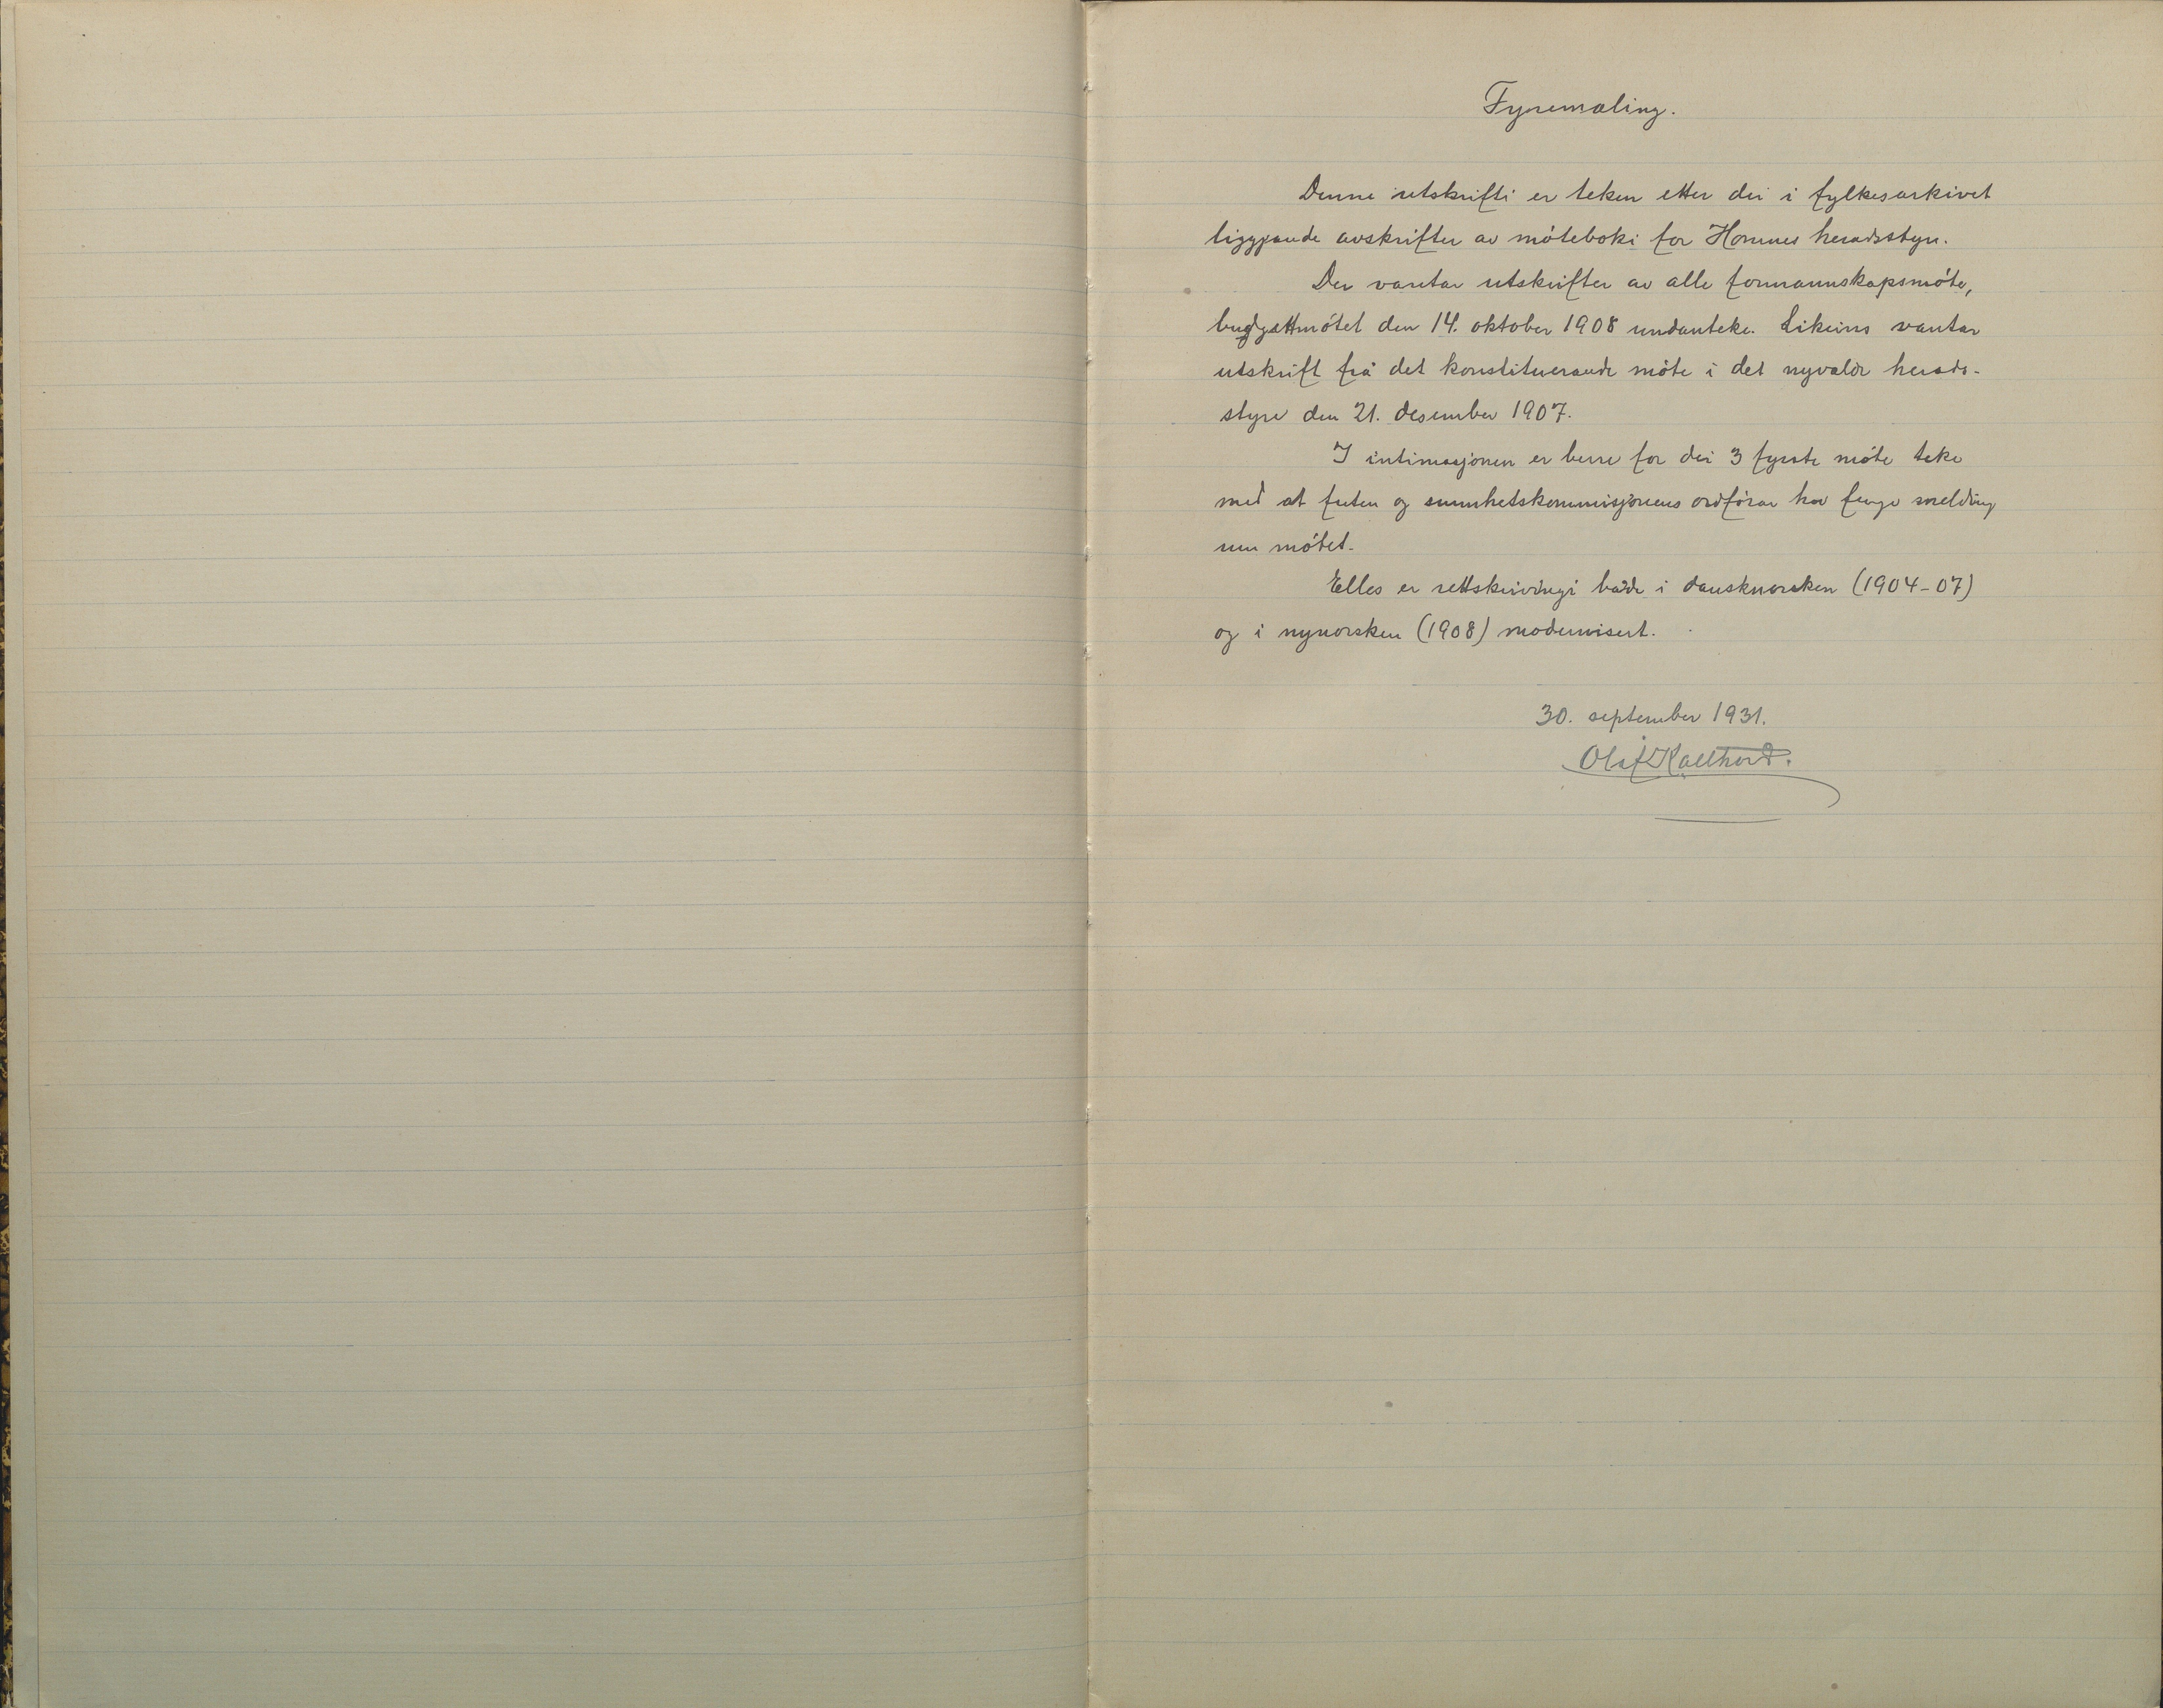 Fyremæling.
Denne utskrifti er teken etter dei i fylkesarkivet
liggjande avskrifter av møteboki for Hornnes heradsstyre.
Der vantar utskrifter av alle formannskapsmøte,
budgettmøtet den 14. oktober 1908 undanteke. Likeins vantar
utskrift frå det konstituerande møte i det nyvalde herads-
styre den 21. desember 1907.
I intimasjonen er berre for dei 3 fyrste møte teke
med at futen og sunnhetskommisjonens ordførar har fenge melding
um møtet.
Elles er rettskrivingi både i dansknorsken (1904-07)
og i nynorsken (1908) modernisert.
30. september 1931.
Olaf